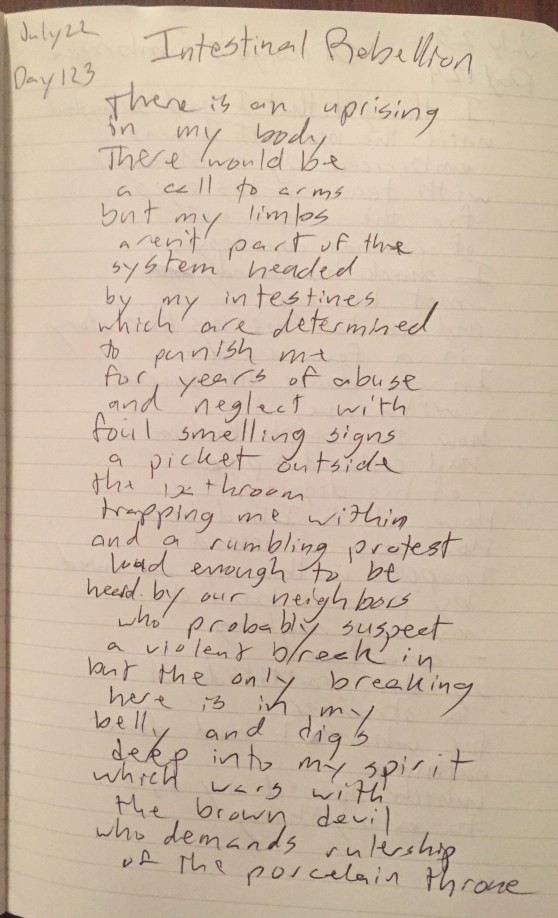 July 22
Day 123
Intestinal Rebellion
There is an uprising
in my body
There would be
a call to arms
but my limbs
aren't part of the
system headed
by my intestines
which are determined
to punish me
for years of abuse
and neglect with
foul smelling signs
a picket outside
the bathroom
trapping me within
and a rumbling protest
loud enough to be
heard by our neighbors
who probably suspect
a violent break in
but the only breaking
here is in my
belly and digs
deep into my spirit
which wars with
the brown devil
who demands rulership
of the porcelain throne